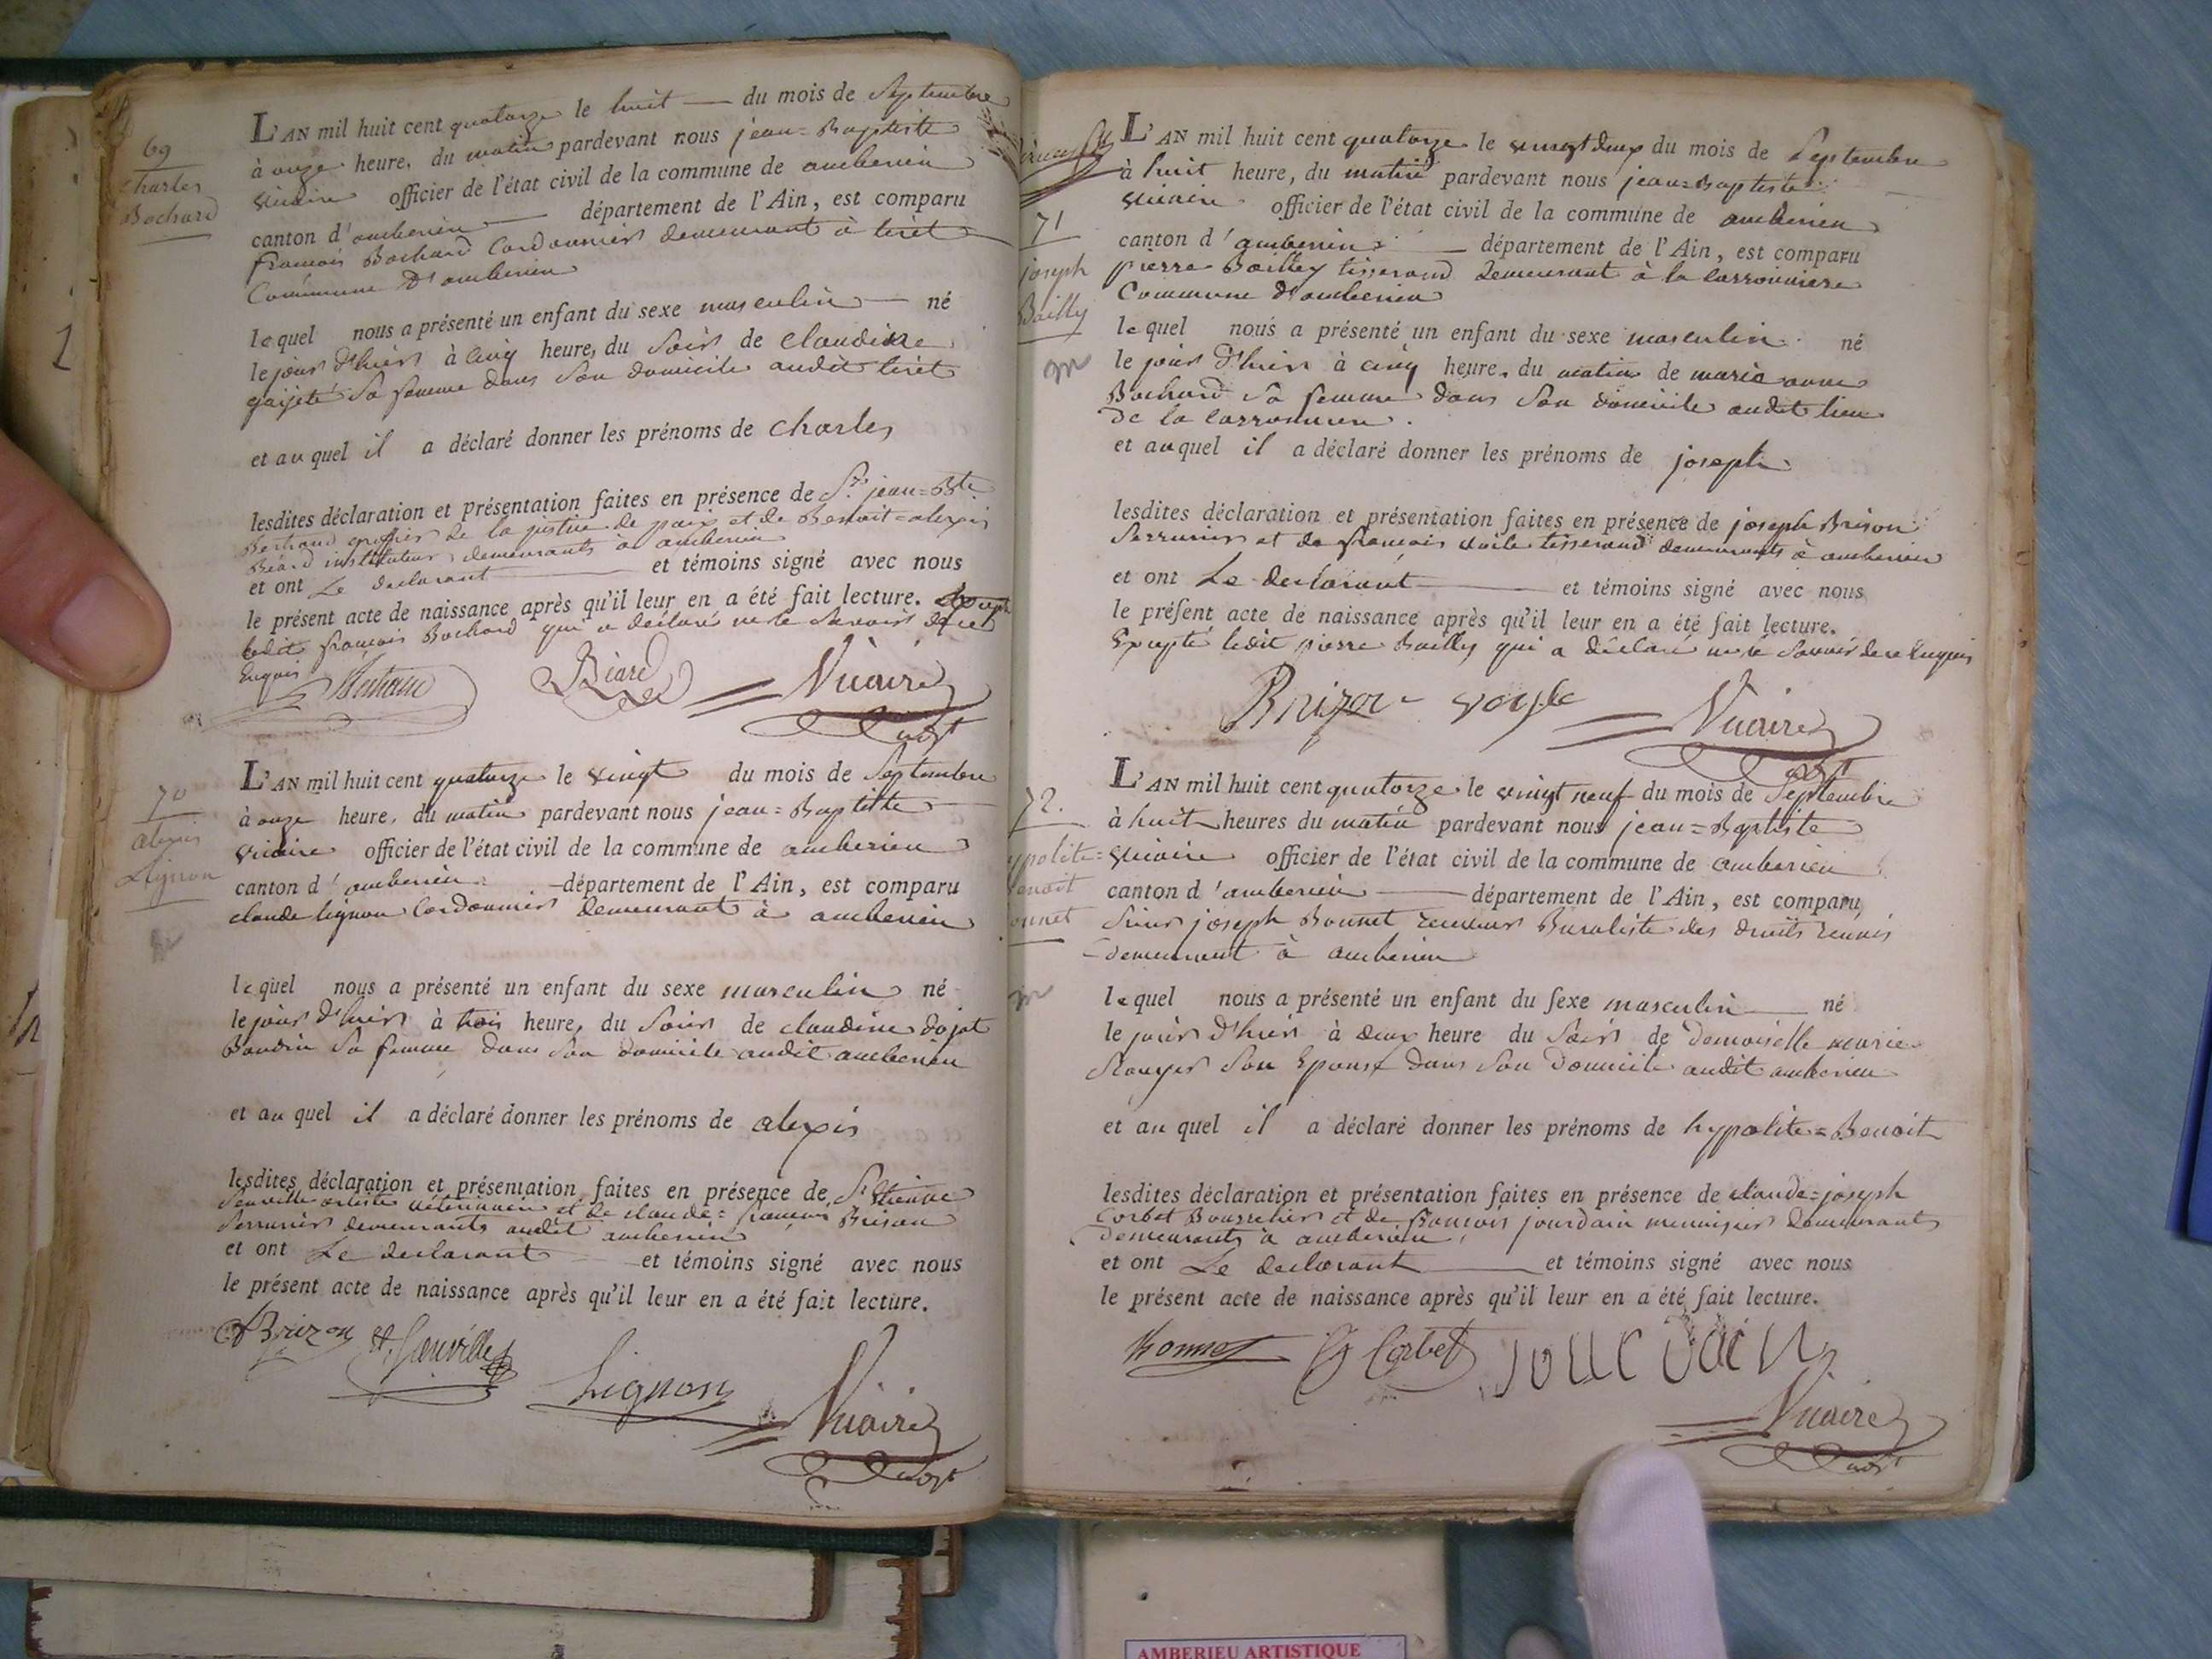 69
Charles
Bochard
L'AN mil huit cent quatorze le huit du mois de Septembre
à onze heure, du matin pardevant nous jean=Baptiste
Vuaire officier de l'état civil de la commune de amberieu
canton d'amberieu département de l'Ain, est comparu
françois Bochard Cordonnier demeurant à tiret
Commune d'amberieu
lequel nous a présenté un enfant du sexe masculin né
le jour d'hier à cinq heure, du soir de claudine
sa femme dans son domicile audit tiret
et auquel il a déclaré donner les prénoms de charles
lesdites déclaration et présentation faites en présence de Sr. jean=Bte
Bertrand greffier de la justice de paix et de Benoit=alexis
Béard instituteur demeurants à amberieu
et ont Le declarant et témoins signé avec nous
le présent acte de naissance après qu'il leur en a été fait lecture.
ledit françois Bochard qui a déclaré ne le Savoir de ce
Enquis
Bertrand Béard Vuaire
70
alexis
Lignon
L'AN mil huit cent quatorze le vingt du mois de Septembre
à onze heure, du matin pardevant nous jean=Baptiste
Vuaire officier de l'état civil de la commune de amberieu
canton d'amberieu département de l'Ain, est comparu
claude lignon Cordonnier demeurant à amberieu
lequel nous a présenté un enfant du sexe masculin né
le jour d'hier à trois heure, du Soir de claudine dojat
Baudin sa femme dans son domicile audit amberieu
et au quel il a déclaré donner les prénoms de alexis
lesdites déclaration et présentation faites en présence de Sr Etienne
artiste vétérinaire et de claude=françois Brison
Serrurier demeurants audit amberieu
et ont Le declarant et témoins signé avec nous
le présent acte de naissance après qu'il leur en a été fait lecture.
Brizon Lignon Vuaire
71
joseph
Bailly
L'AN mil huit cent quatorze le vingt deux du mois de Septembre
à huit heure, du matin pardevant nous jean=Baptiste
Vuaire officier de l'état civil de la commune de amberieu
canton d'amberieu département de l'Ain, est comparu
pierre Bailley tisserand demeurant à la carronniere
Commune d'amberieu
lequel nous a présenté un enfant du sexe masculin né
le jour d'hier à cinq heure, du matin de marie anne
Bochard sa femme dans son domicile audit lieu
de la carronniere
et auquel il a déclaré donner les prénoms de joseph
lesdites déclaration et présentation faites en présence de joseph Brison
Serrurier et de françois voile tisserand demeurants à amberieu
et ont Le declarant et témoins signé avec nous
le présent acte de naissance après qu'il leur en a été fait lecture.
Excepté ledit pierre Bailly qui a déclaré ne le Savoir de ce Enquis
Brizon voyle Vuaire
72.
L'AN mil huit cent quatorze le vingt neuf du mois de Septembre
à huit heures du matin pardevant nous jean=Baptiste
Vuaire officier de l'état civil de la commune de amberieu
canton d'amberieu département de l'Ain, est comparu,
Sieur joseph Bonnet receveur Buraliste des droits reunis
demeurant à amberieu
lequel nous a présenté un enfant du sexe masculin né
le jour d'hier à deux heure du Soir de Demoiselle marie
Rouyer son Epouse dans son Domicile audit amberieu
et au quel il a déclaré donner les prénoms de hypolite=Benoit
lesdites déclaration et présentation faites en présence de claude=joseph
Corbet Bourrelier et de françois jourdain menuisier demeurants
demeurants à amberieu
et ont Le declarant et témoins signé avec nous
le présent acte de naissance après qu'il leur en a été fait lecture.
Bonnet Corbet jourdain
Vuaire
AMBERIEU ARTISTIQUE